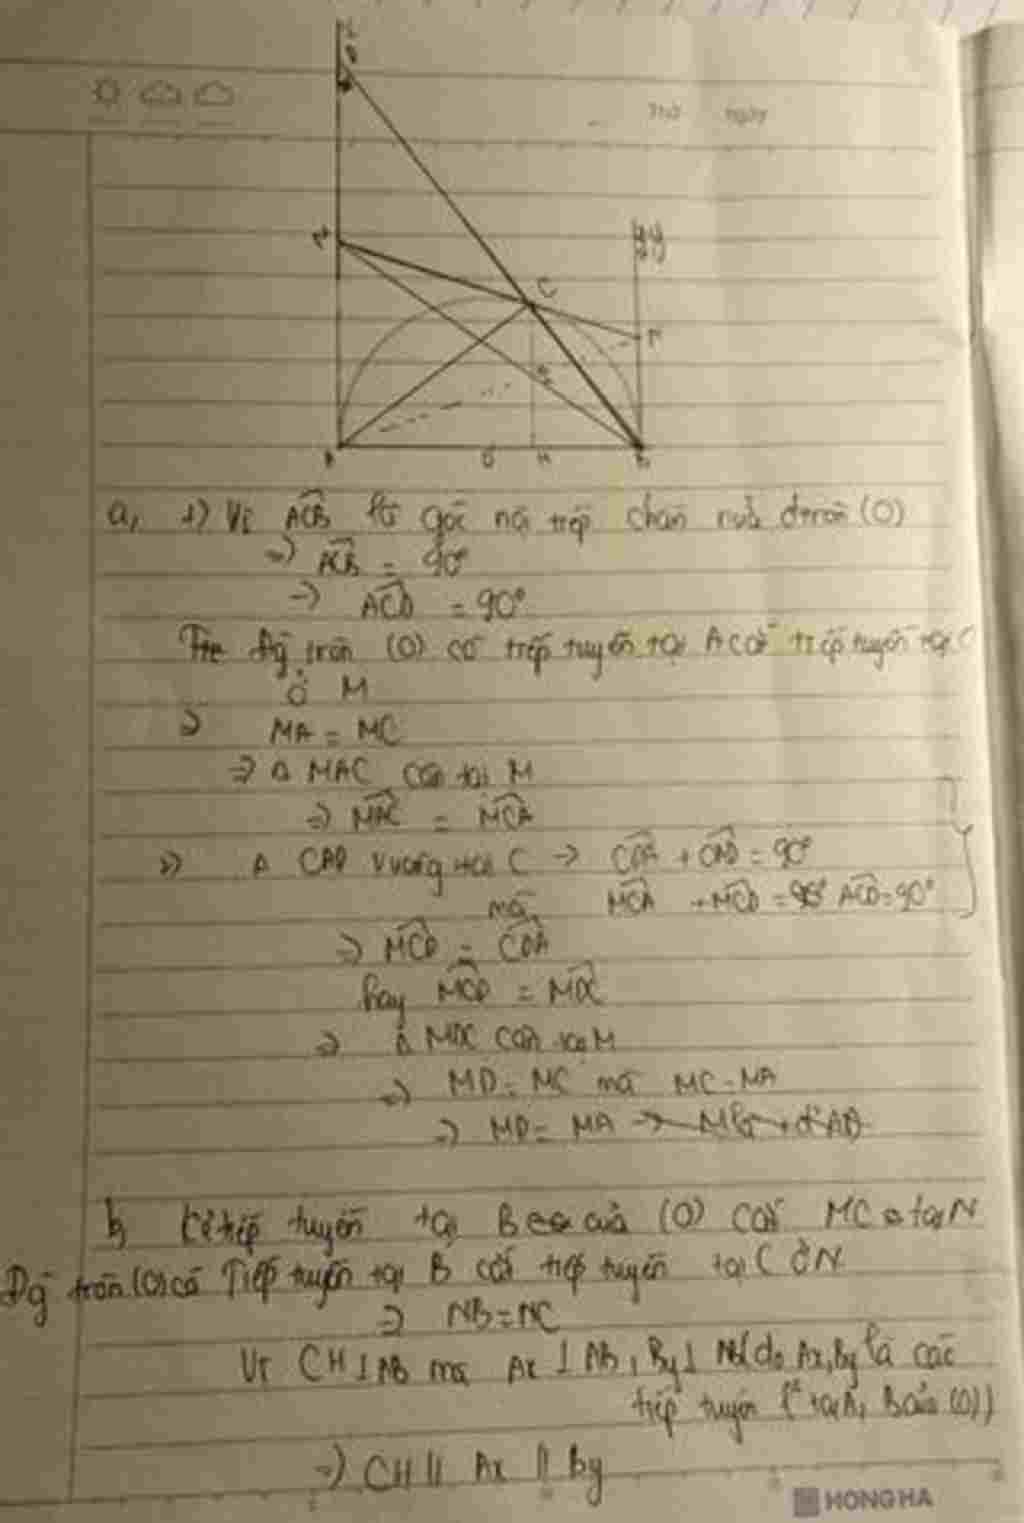 x
D
Thứ ngày
M
y
C
N
A O H B
a, +) Vì ACB là góc nội tiếp chắn nửa đtròn (O)
=> ACB = 90°
=> ACD = 90°
đg tròn (O) có tiếp tuyến tại A cắt tiếp tuyến tại C
ở M
=> MA = MC
=> Δ MAC cân tại M
=> MAC = MCA
Δ CAD vuông tại C => CDA + CAD = 90°
mà MCA + MCD = ACD = 90°
=> MCD = CDA
hay MCD = MDC
=> Δ MDC cân tại M
=> MD = MC mà MC = MA
=> MD = MA
b, Kẻ tiếp tuyến tại B của (O) cắt MC tại N
Đg tròn (O) có Tiếp tuyến tại B cắt tiếp tuyến tại C ở N
=> NB = NC
Vì CH ⊥ AB mà Ax ⊥ AB, By ⊥ AB (do Ax, By là các
tiếp tuyến tại A, B của (O))
=> CH // Ax // By
HONG HA